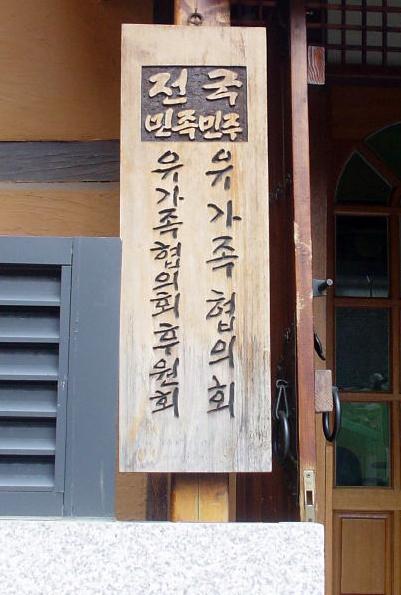 전국
민족민주
유가족협의회
유가족협의회후원회